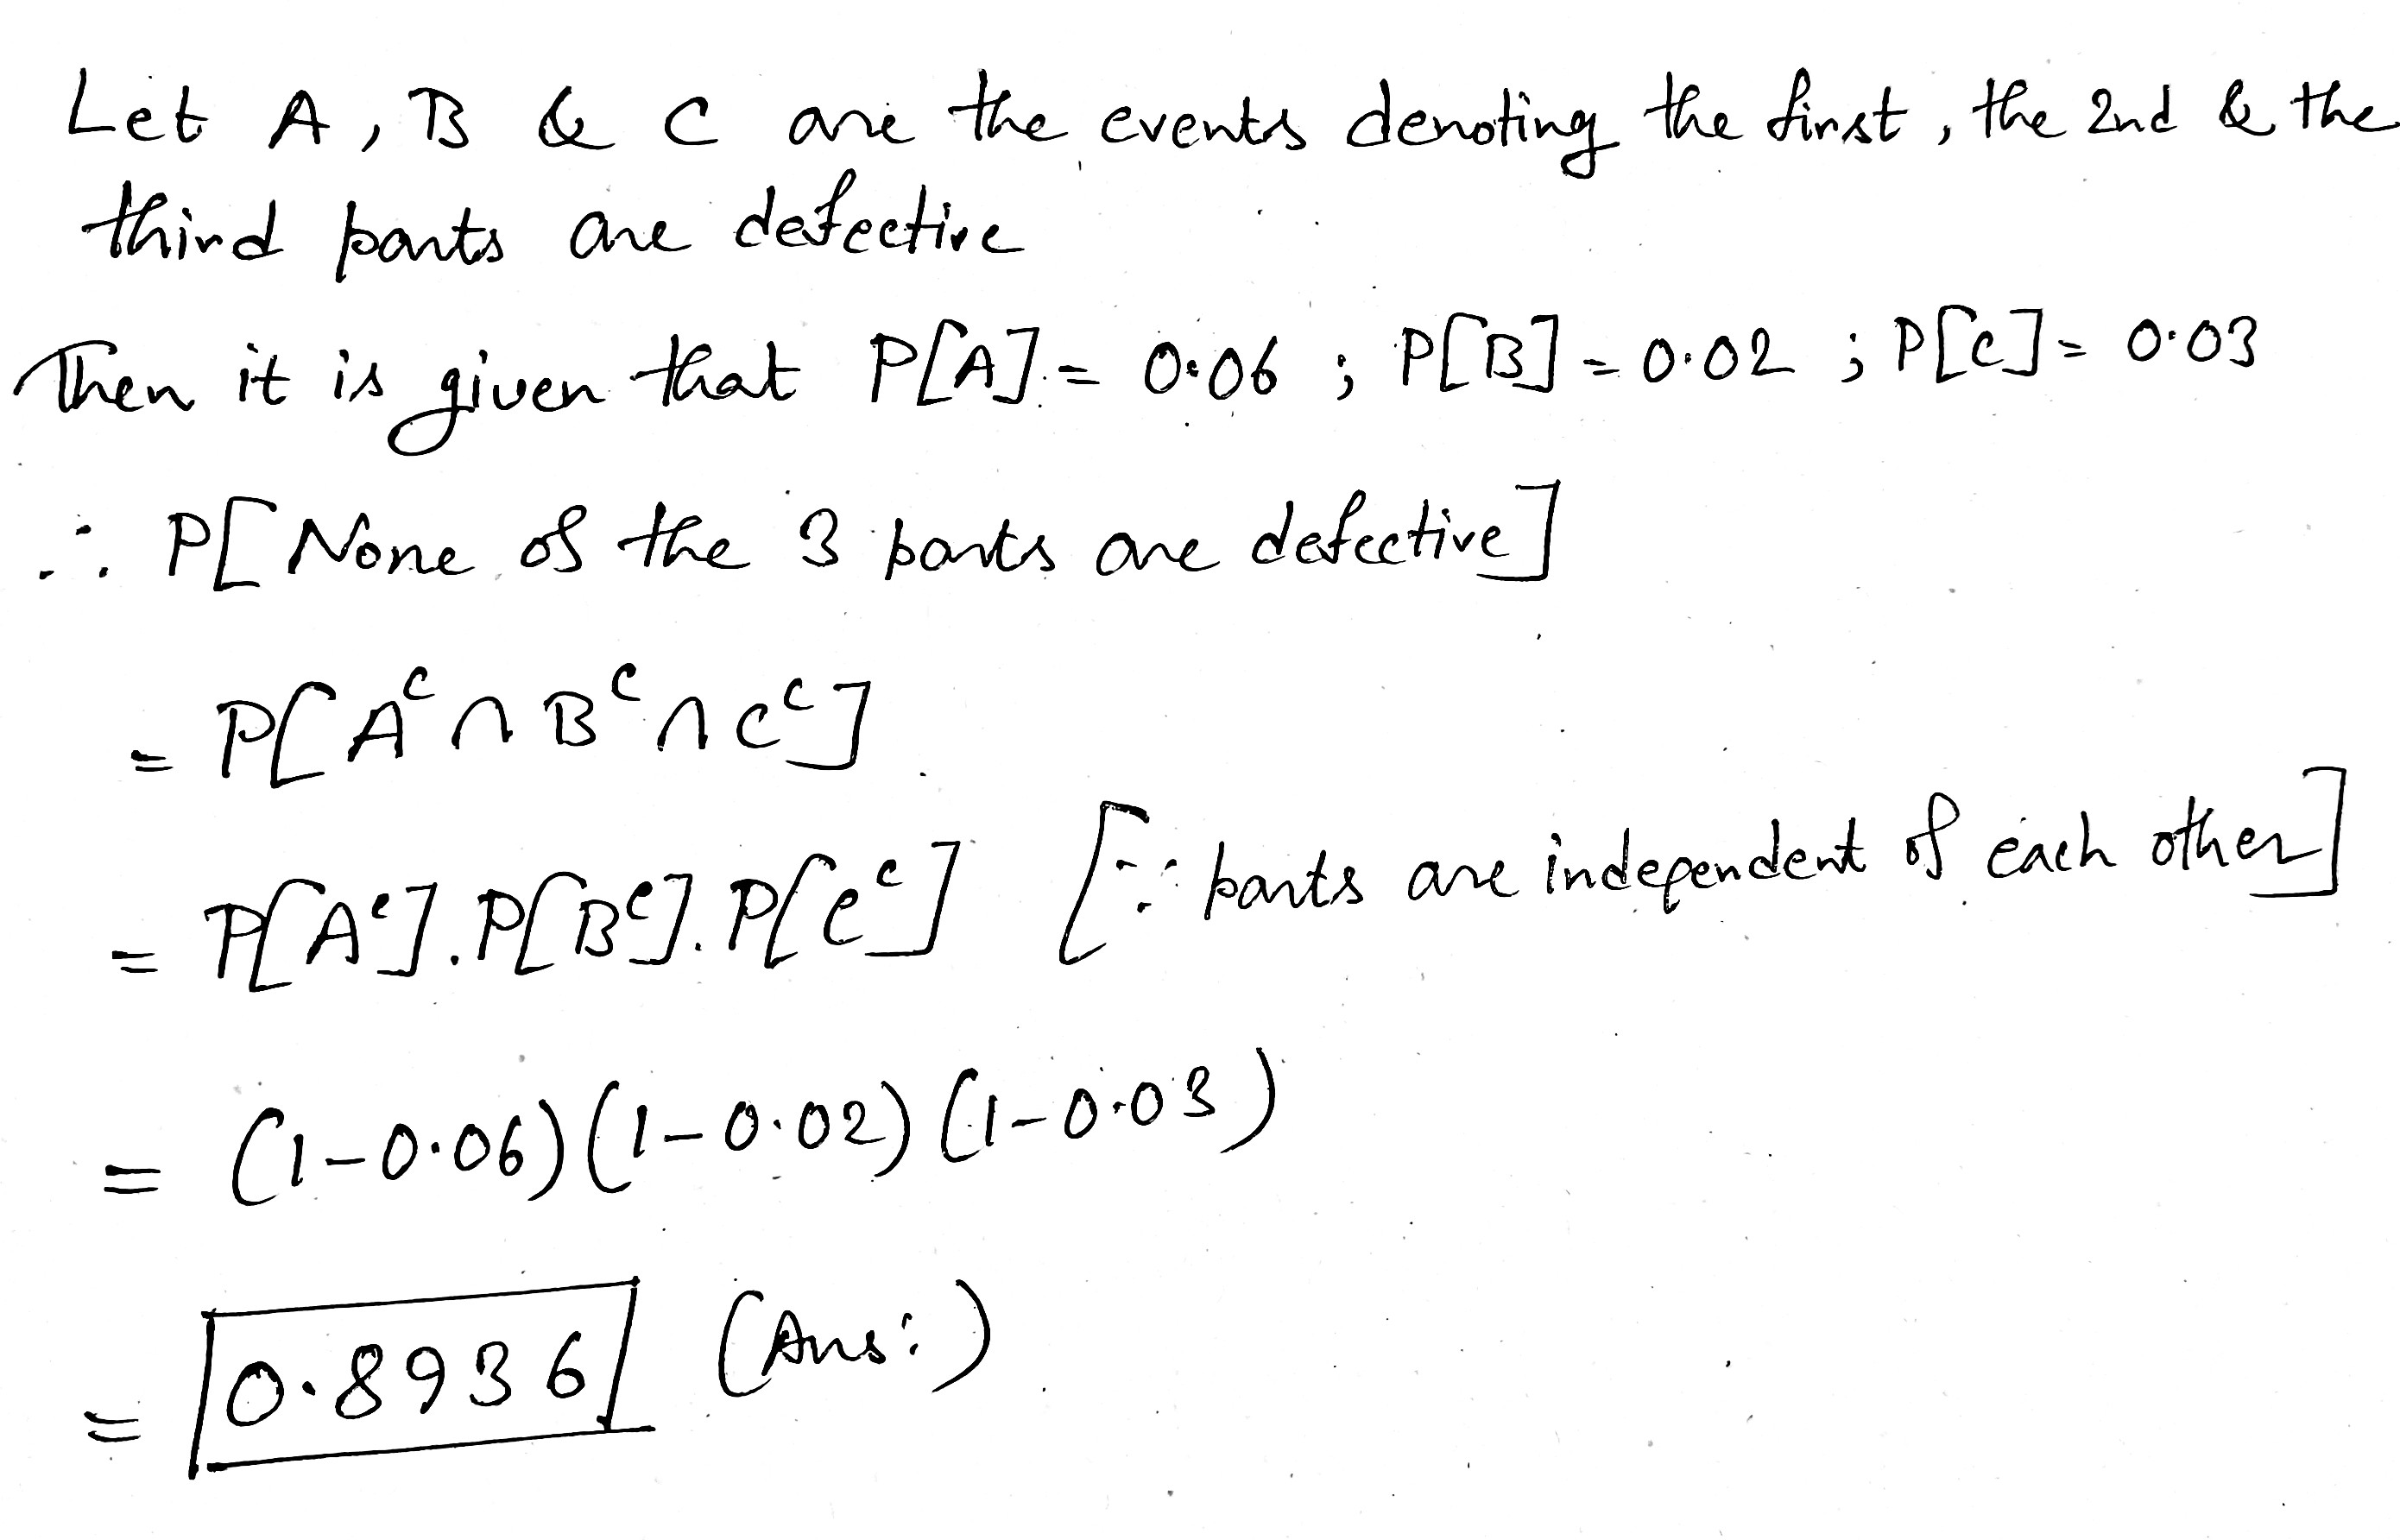 Let A, B & C are the events denoting the first, the 2nd & the
third parts are defective
Then it is given that P[A] = 0.06 ; P[B] = 0.02 ; P[C] = 0.03
∴ P[None of the 3 parts are defective]
= P[Aᶜ ∩ Bᶜ ∩ Cᶜ]
= P[Aᶜ].P[Bᶜ].P[Cᶜ] [∵ parts are independent of each other]
= (1-0.06)(1-0.02)(1-0.03)
= 0.8936 (Ans:)